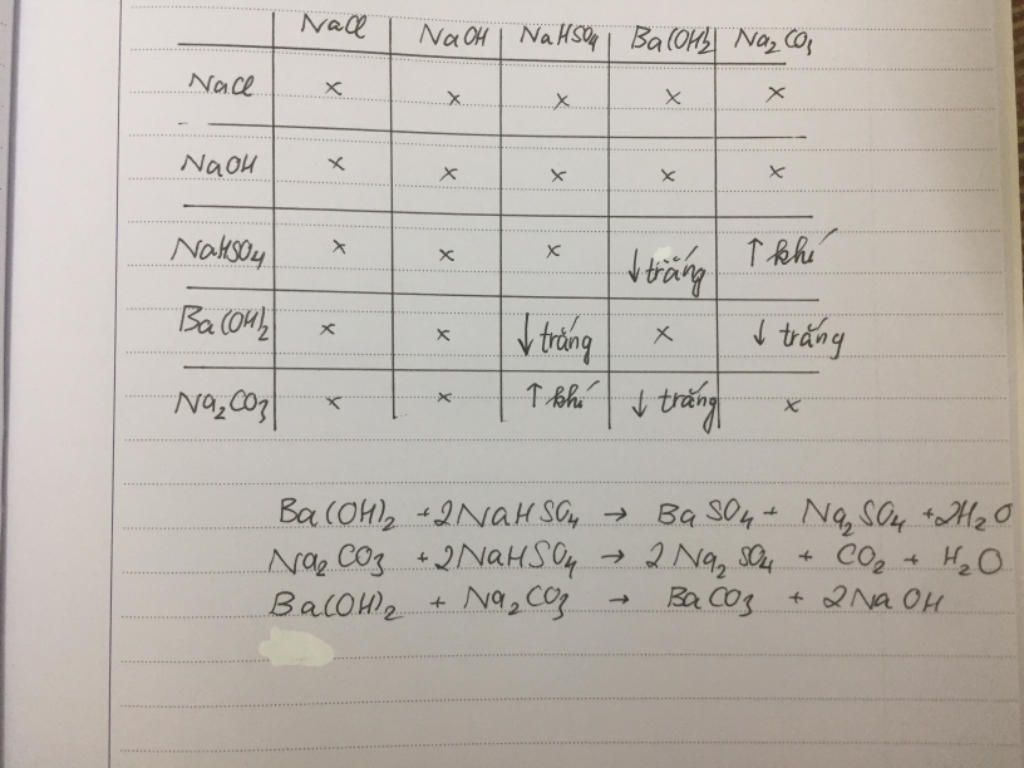 NaCl NaOH NaHSO₄ Ba(OH)₂ Na₂CO₃
NaCl x x x x x
NaOH x x x x x
NaHSO₄ x x x ↓ trắng ↑ khí
Ba(OH)₂ x x ↓ trắng x ↓ trắng
Na₂CO₃ x x ↑ khí ↓ trắng x
Ba(OH)₂ + 2NaHSO₄ → BaSO₄ + Na₂SO₄ + 2H₂O
Na₂CO₃ + 2NaHSO₄ → 2Na₂SO₄ + CO₂ + H₂O
Ba(OH)₂ + Na₂CO₃ → BaCO₃ + 2NaOH